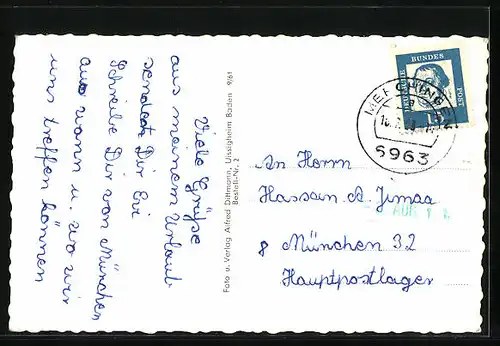 Viele Grüße
aus meinem Urlaub
sendet Dir Evi
Schreibe Dir von München
aus wann u. wo wir
uns treffen können
Foto u. Verlag Alfred Dittmann, Uissigheim Baden 9/61
Bestell-Nr. 2
DEUTSCHE BUNDES POST
15
MERCHINGEN
6963
An Herrn
Hassan A. Jimaa
AUG 1
8 München 32
Hauptpostlager